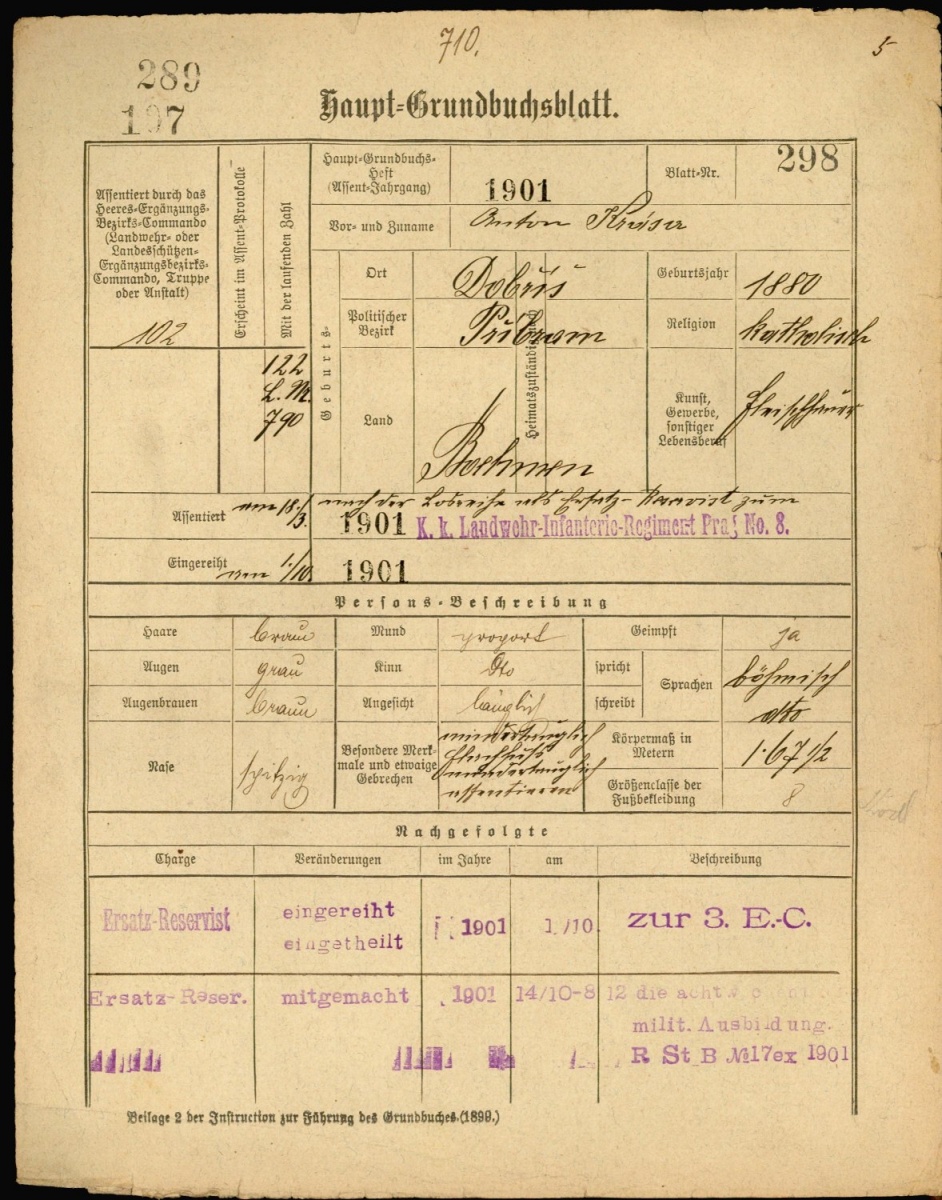 710.
5
289
197
Haupt-Grundbuchsblatt.
Assentiert durch das
Heeres-Ergänzungs-
Bezirks-Commando
(Landwehr- oder
Landesschützen-
Ergänzungsbezirks-
Commando, Truppe
oder Anstalt)
102
Erscheint im Assent-Protokolle
Mit der laufenden Zahl
122
L. M.
790
Haupt-Grundbuchs-
Heft
(Assent-Jahrgang)
1901
Blatt-Nr.
298
Vor- und Zuname
Anton
Geburts-
Ort
Dobřiš
Geburtsjahr
1880
Politischer
Bezirk
Přibram
Religion
katholisch
Heimatszuständigkeit
Land
Boehmen
Kunst,
Gewerbe,
sonstiger
Lebensberuf
Fleischhauer
Assentiert
am 18./3. 1901
nach der Losreihe als Ersatz-Reservist zum
K. k. Landwehr-Infanterie-Regiment Prag No. 8.
Eingereiht
am 1/10. 1901
Persons-Beschreibung
Haare braun
Mund proport
Geimpft ja
Augen grau
Kinn dto
spricht
schreibt
Sprachen
böhmisch
dto
Augenbrauen braun
Angesicht länglich
Nase spitzig
Besondere Merk-
male und etwaige
Gebrechen
mindertauglich
Plachfuss
mindertauglich
assentieren
Körpermaß in
Metern
1·67 1/2
Größenclasse der
Fußbekleidung
8
Nachgefolgte
Charge Veränderungen im Jahre am Beschreibung
Ersatz-Reservist
eingereiht
eingetheilt
1901 1./10. zur 3. E.-C.
Ersatz-Reser. mitgemacht 1901 14/10-8 12 die
milit. Ausbildung.
R St B №17ex 1901
Beilage 2 der Instruction zur Führung des Grundbuches (1899.)